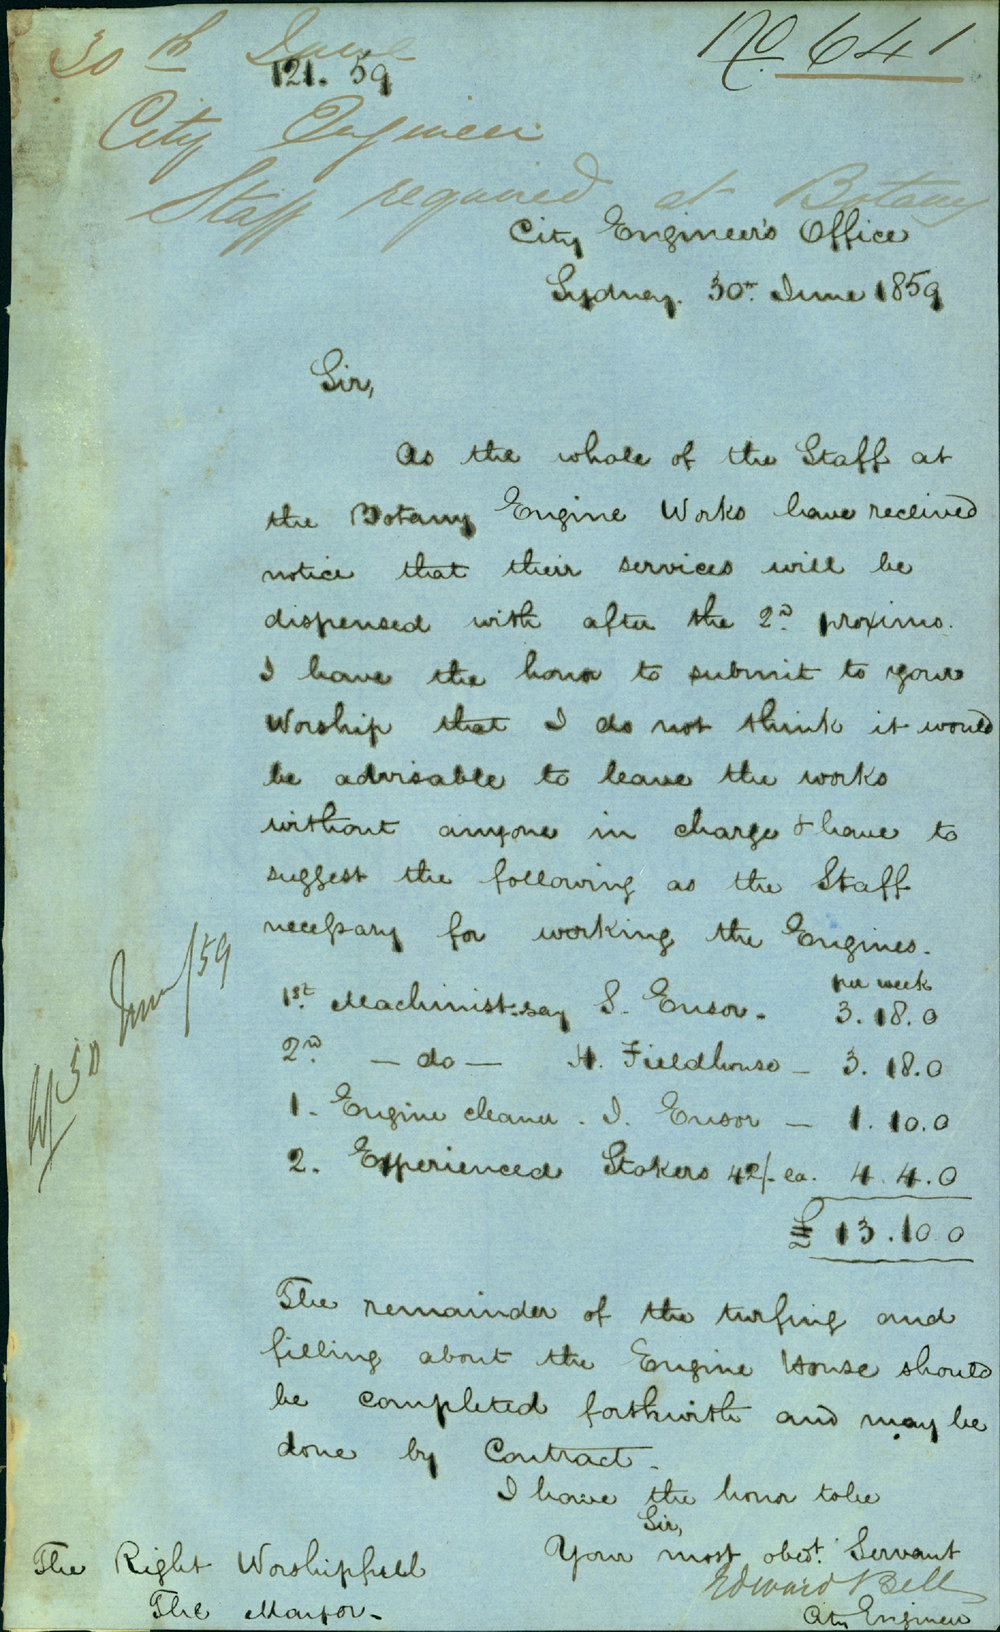 No. 641
30th June
121. 59
City Engineer
Staff required at Botany
City Engineer's Office
Sydney. 30th June 1859
Sir,
As the whole of the Staff at
the Botany Engine Works have received
notice that their services will be
dispensed with after the 2nd proximo.
I have the honor to submit to your
Worship that I do not think it would
be advisable to leave the works
without anyone in charge & have to
suggest the following as the Staff
necessary for working the Engines.
per week
1st Machinist. say S. Ensor. 3. 18. 0
2nd — do — H. Fieldhouse — 3. 18. 0
1. Engine cleaner. I. Ensor — 1. 10. 0
2. Experienced Stokers 42/- ea. 4. 4. 0
£ 13. 10. 0
30 June/59
The remainder of the turfing and
filling about the Engine House should
be completed forthwith and may be
done by Contract.
I have the honor to be
Sir,
Your most obedt. Servant
Edward Bell
City Engineer
The Right Worshipfull
The Mayor.